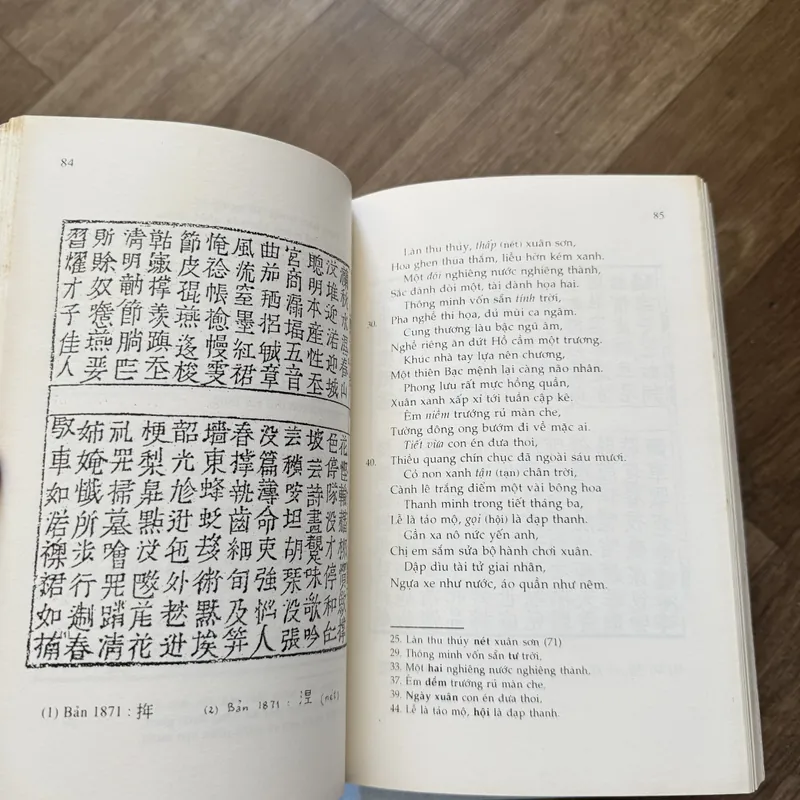 84
瀾秋水濕春山
花慳
没堆迎渃迎城
色停隊没才停和
聰明本産性
坡芸詩畫味歌吟
宮商漏堛五音
芸坦胡琴没張
曲茄招章
没篇薄命吏強惱人
風流窒墨紅裙
春撑執齒細旬及笄
淹稔帳幔
墙東蜂術默埃
節皮燕迻梭
韶光外
撑羡
梗梨點没花
清明節
掃墓噲踏清
賖奴燕
姉所步行制春
習燿才子佳人
馭車如渃裙如
(1) Bản 1871 : 𢫫
(2) Bản 1871 : 湼 (nét)
85
Làn thu thủy, thấp (nét) xuân sơn,
Hoa ghen thua thắm, liễu hờn kém xanh.
Một đôi nghiêng nước nghiêng thành,
Sắc đành đòi một, tài đành họa hai.
Thông minh vốn sẵn tính trời,
30. Pha nghề thi họa, đủ mùi ca ngâm.
Cung thương làu bậc ngũ âm,
Nghề riêng ăn đứt Hồ cầm một trương.
Khúc nhà tay lựa nên chương,
Một thiên Bạc mệnh lại càng não nhân.
Phong lưu rất mực hồng quần,
Xuân xanh xấp xỉ tới tuần cập kê.
Êm niềm trướng rủ màn che,
Tường đông ong bướm đi về mặc ai.
Tiết vừa con én đưa thoi,
40. Thiều quang chín chục đã ngoài sáu mươi.
Cỏ non xanh tận (tạn) chân trời,
Cành lê trắng điểm một vài bông hoa
Thanh minh trong tiết tháng ba,
Lễ là tảo mộ, gọi (hội) là đạp thanh.
Gần xa nô nức yến anh,
Chị em sắm sửa bộ hành chơi xuân.
Dập dìu tài tử giai nhân,
Ngựa xe như nước, áo quần như nêm.
25. Làn thu thủy nét xuân sơn (71)
29. Thông minh vốn sẵn tư trời,
33. Một hai nghiêng nước nghiêng thành.
37. Êm đềm trướng rủ màn che.
39. Ngày xuân con én đưa thoi,
44. Lễ là tảo mộ, hội là đạp thanh.